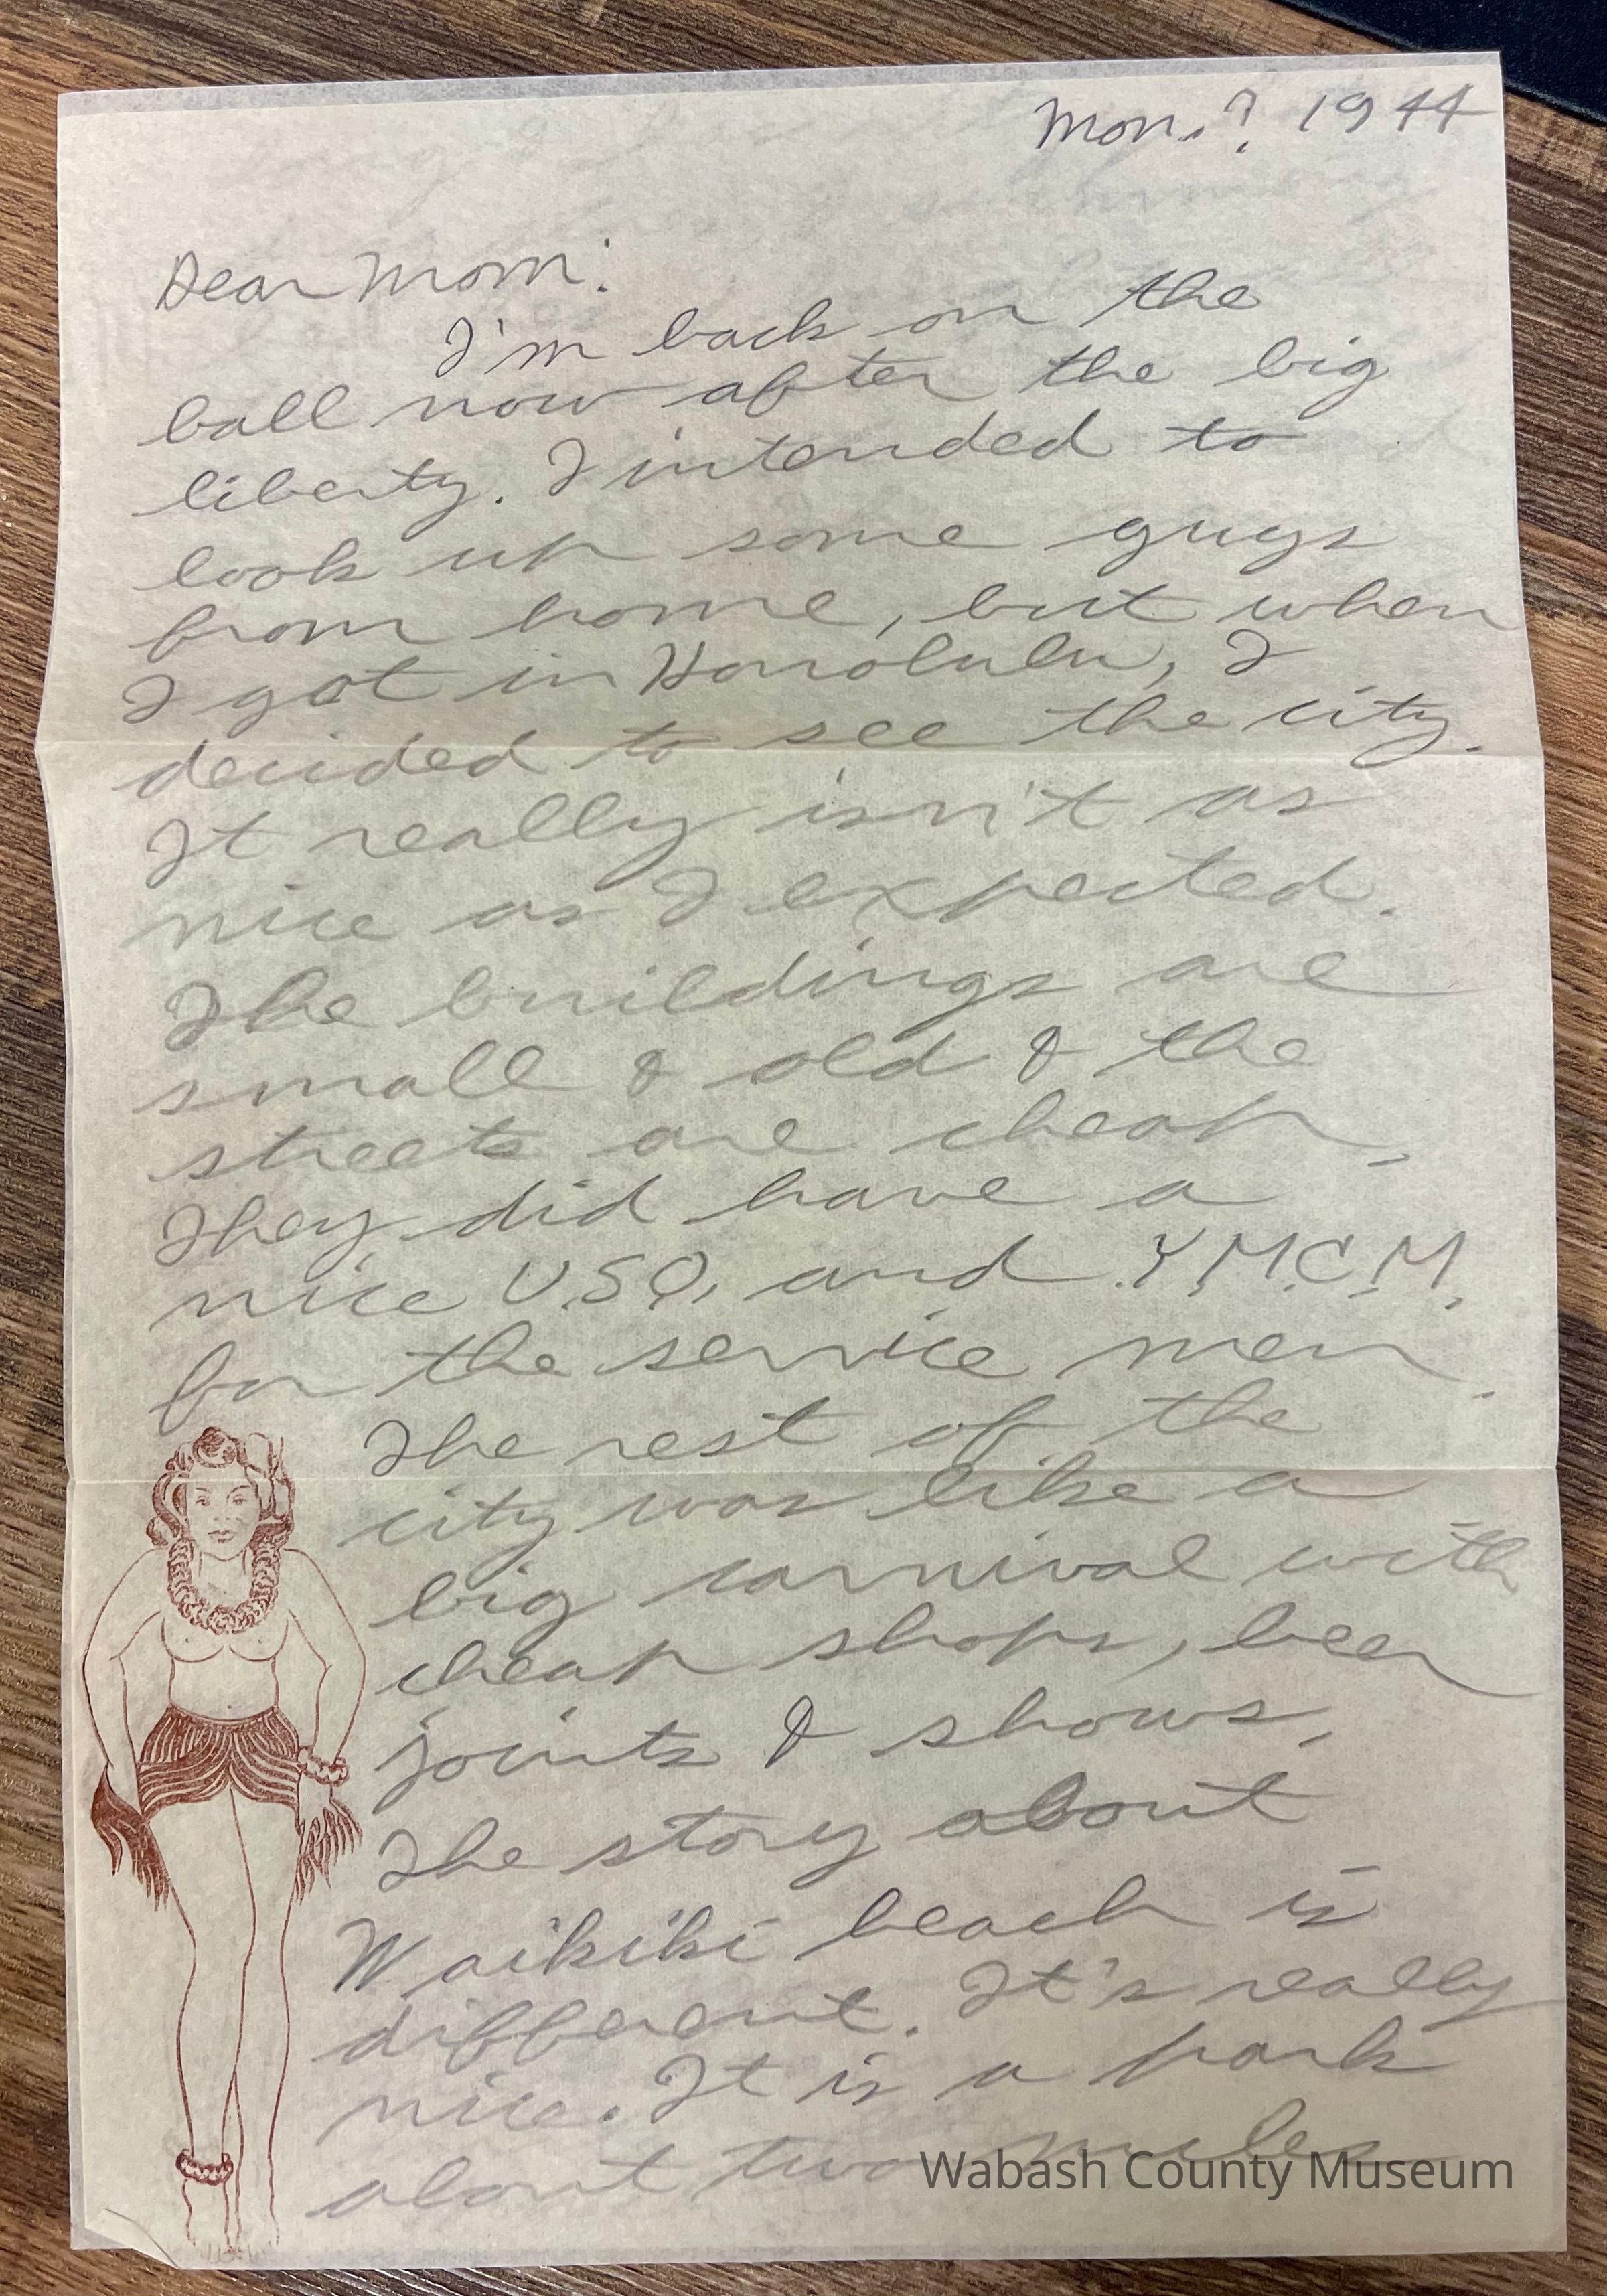 Mon.? 1944
Dear Mom:
I'm back on the
ball now after the big
liberty. I intended to
look up some guys
from home, but when
I got in Honolulu, I
decided to see the city.
It really isn't as
nice as I expected.
The buildings are
small & old & the
streets are cheap.
They did have a
nice U.S.O. and Y.M.C.M.
for the service men.
The rest of the
city was like a
big carnival with
cheap shops, beer
joints & shows.
The story about
Waikiki beach is
different. It's really
nice. It is a park
about two miles
Wabash County Museum